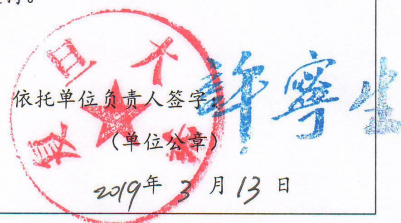 依托单位负责人签字 许宁生
（单位公章）
2019年 3 月 13 日